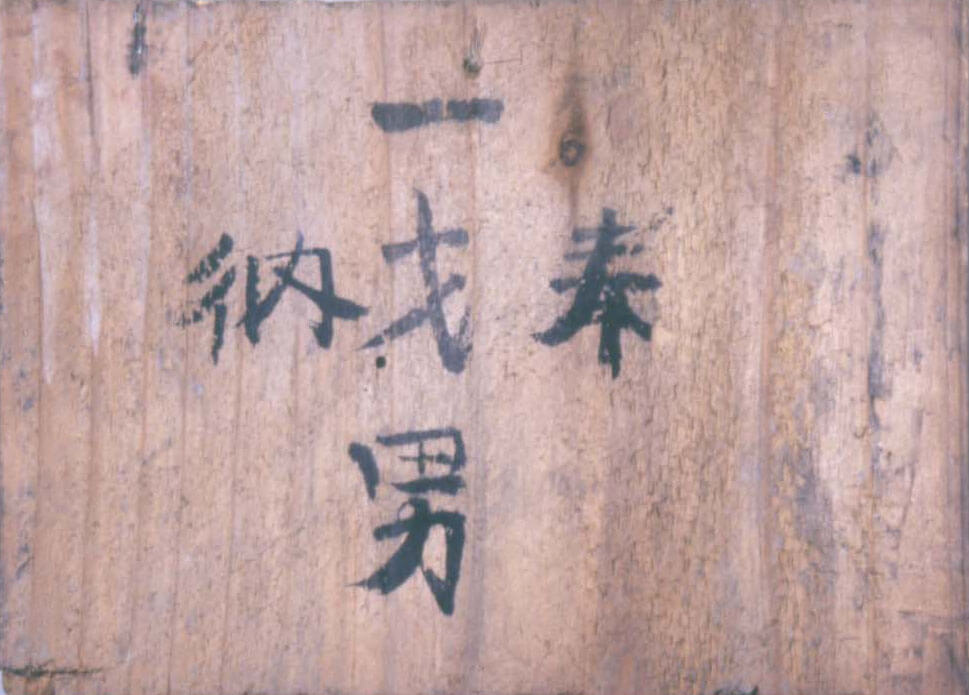 奉
一才男
納